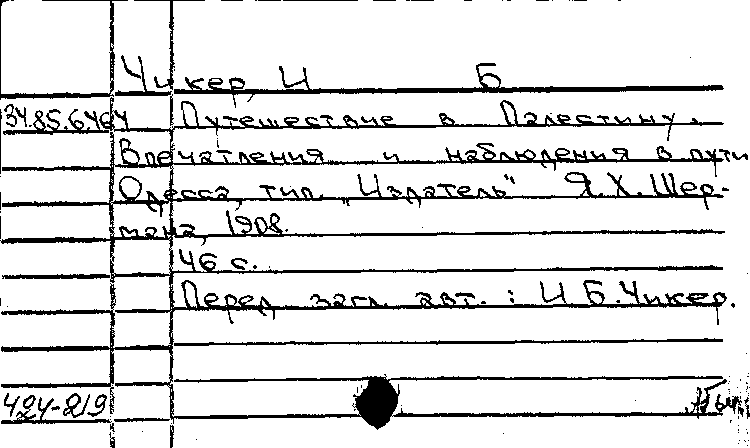 Чикер, И Б
34.85.6.464 Путешествие в Палестину.
Впечатления и наблюдения в пути
Одесса, тип. „Издатель" Я.Х.Шер-
мана, 1908.
46 с.
Перед загл. авт. : И.Б.Чикер.
424-219